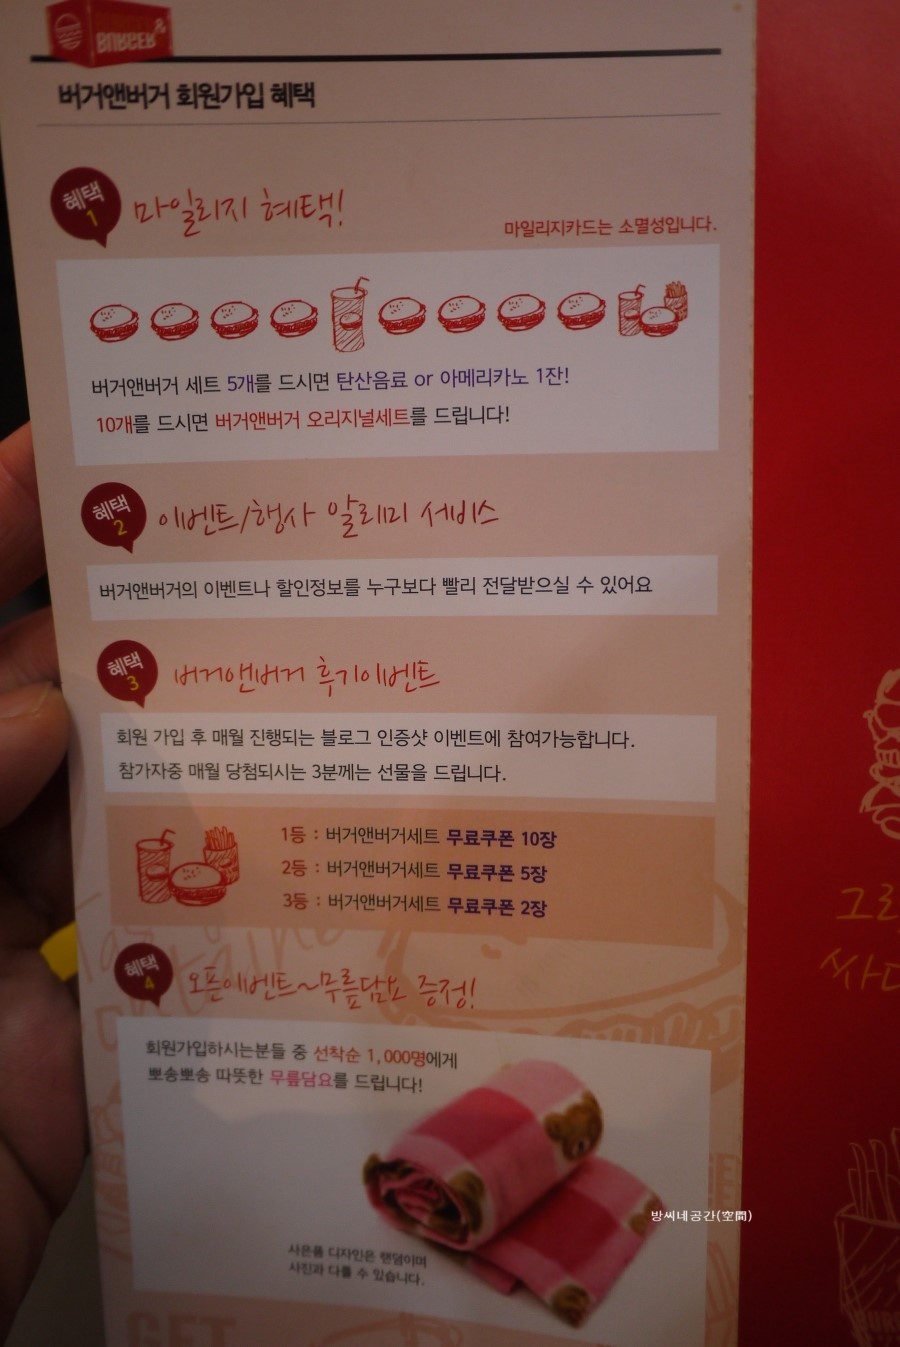 BURGER&
BURGER
버거앤버거 회원가입 혜택
혜택
1
마일리지 혜택!
마일리지카드는 소멸성입니다.
버거앤버거 세트 5개를 드시면 탄산음료 or 아메리카노 1잔!
10개를 드시면 버거앤버거 오리지널세트를 드립니다!
혜택
2
이벤트/행사 알리미 서비스
버거앤버거의 이벤트나 할인정보를 누구보다 빨리 전달받으실 수 있어요
혜택
3
버거앤버거 후기이벤트
회원 가입 후 매월 진행되는 블로그 인증샷 이벤트에 참여가능합니다.
참가자중 매월 당첨되시는 3분께는 선물을 드립니다.
1등 : 버거앤버거세트 무료쿠폰 10장
2등 : 버거앤버거세트 무료쿠폰 5장
3등 : 버거앤버거세트 무료쿠폰 2장
혜택
4
오픈이벤트~무릎담요 증정!
회원가입하시는분들 중 선착순 1,000명에게
뽀송뽀송 따뜻한 무릎담요를 드립니다!
사은품 디자인은 랜덤이며
사진과 다를 수 있습니다.
방씨네공간(空間)
GET